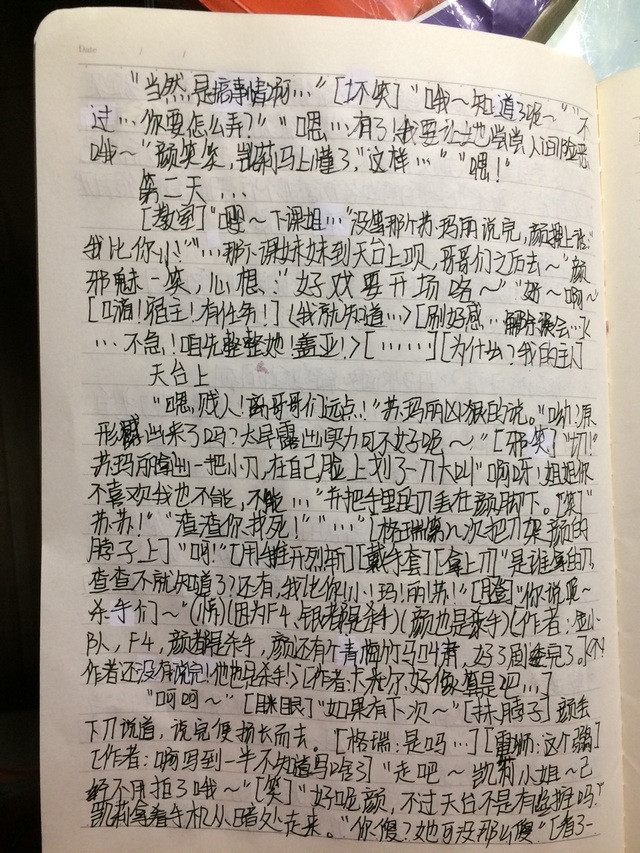 Date / /
"当然是搞事情啊…"[坏笑]"哦~知道了呢~""不
过…你要怎么弄?""嗯…有了!我要让她尝尝人间险恶
哦~"颜笑笑,凯莉马上懂了,"这样…""嗯!"
第二天…
[教室]"嘤~下课姐…"没等那个苏·玛丽说完,颜
我比你小!""…那个课妹妹到天台上呗,哥哥们之后去~"颜
邪魅一笑,心想:"好戏要开场咯~""好~啊~
[嘀!宿主!有任务!]<我就知道…>[刷好感…解除误会…]<
…不急!咱先整整她!盖亚!>[……][为什么?我的主人]
天台上
"嗯,贱人!离哥哥们远点!"苏·玛丽凶狠的说。"呦~原
形露出来了吗?太早露出实力可不好呢~"[邪笑]"切!"
苏玛丽拿出一把小刀,在自己脸上划了一刀大叫"啊呀!姐姐你
不喜欢我也不能,不能…"并把手里的刀丢在颜脚下。[笑]"
苏·苏!""渣渣你找死!""…"[格瑞第n次把刀架颜的
脖子上]"呀!"[用维开列斩][戴手套][拿上刀]"是谁拿的刀,
查查不就知道了?还有,我比你小!玛!丽·苏!"[瞪]"你说呢~
杀手们~"(情)(因为F4、银者是杀手)(颜也是杀手)(作者:金小
队,F4,颜都是杀手,颜还有个青梅竹马叫肃,好了剧透完了。)<N
作者还没有说完!他也是杀手!>[作者:卡米尔,好像算是吧…]
"呵呵~"[眯眼]"如果有下次~"[抹脖子]颜丢
下刀说道,说完便扬长而去。[格瑞:是吗…][雷狮:这个弱]
[作者:啊写到一半不知道写啥了]"走吧~凯莉小姐~已
经不用拍了哦~"[笑]"好呢颜,不过天台不是有监控吗?"
凯莉拿着手机从暗处走来。"你傻?她可没那么傻"[看了一